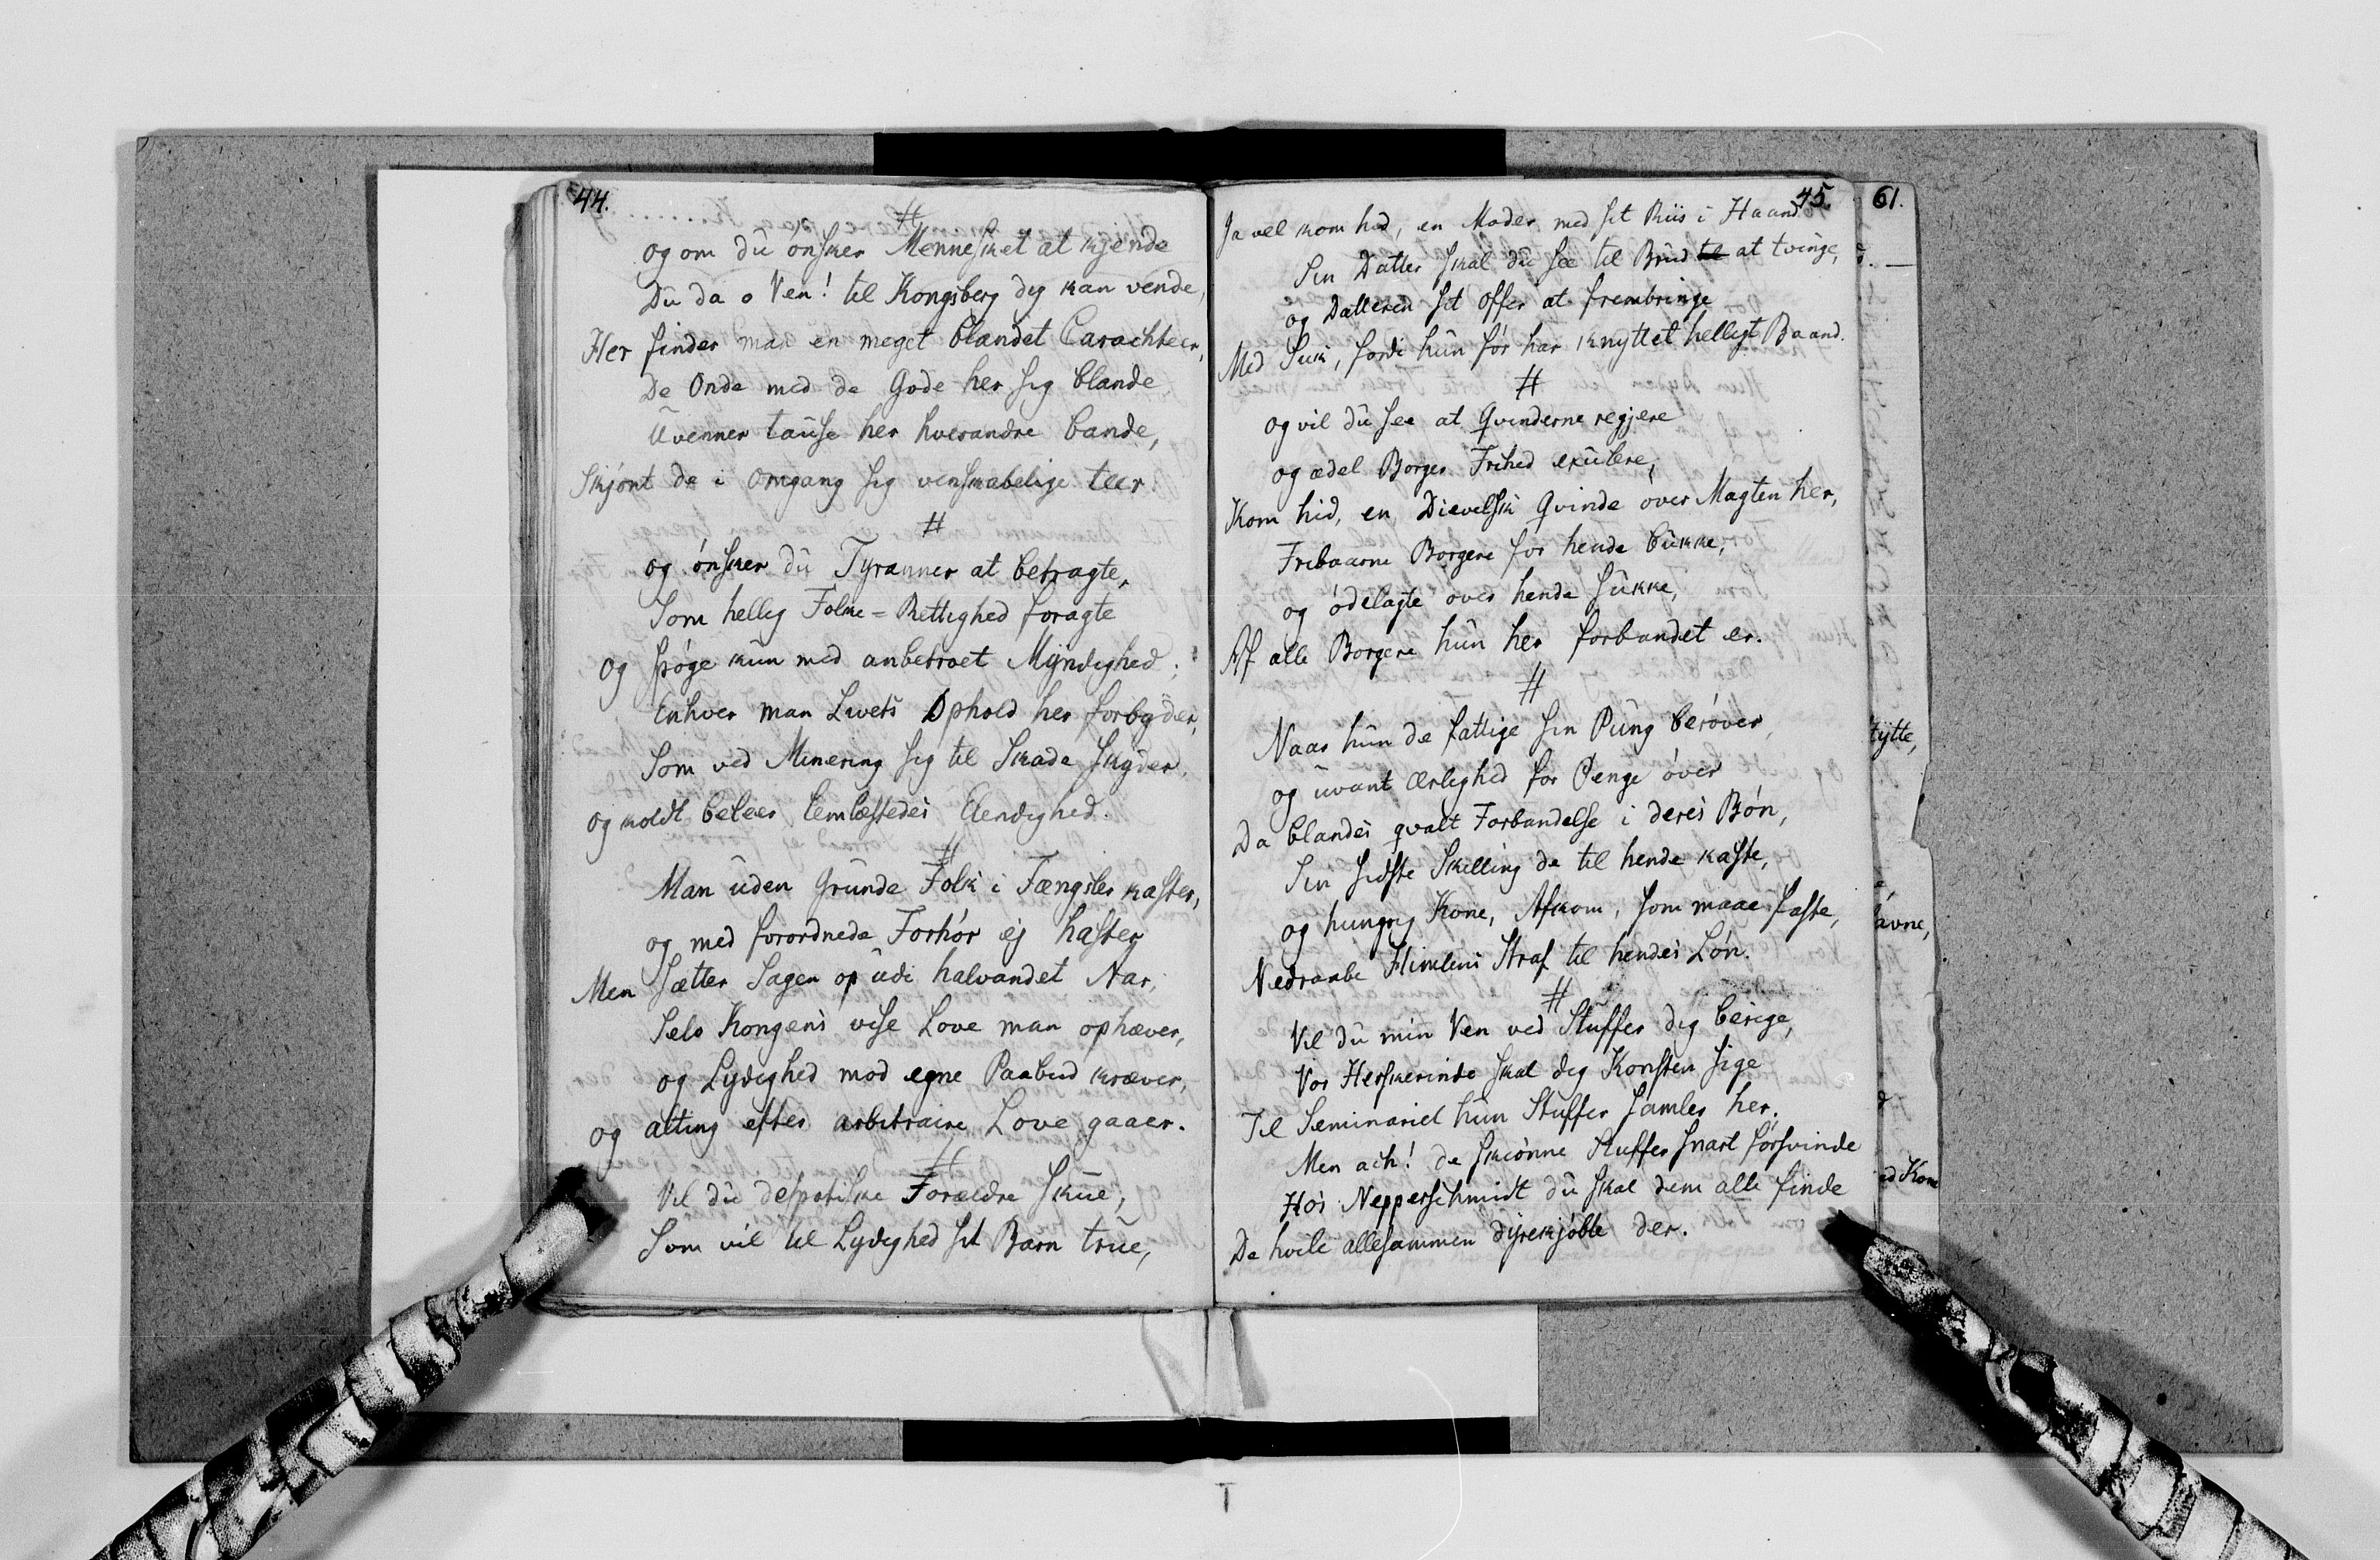 44.
#
og om du ønsker Mennesket at kjende
Du da o Ven! til Kongsberg dig kan vende,
Her finder man en meget blandet Carachteer,
De Onde med de Gode her sig blande
Uvenner tause her hverandre bande,
Skjønt de i Omgang sig venskabelige teer
#
og ønsker du Tyranner at betragte,
Som hellig Folke=Rettighed foragte
og spøge kun med anbetroet Myndighed;
Enhver man Livets Ophold her forbyder,
Som ved Minering sig til Skade skyder,
og koldt beleer lemlæstedes Elendighed.
#
Man uden Grunde Folk i Fængsler kaster,
og med forordnede Forhør ej haster
Men sætter Sagen op udi halvandet Aar,
Selv Kongens vise Love man ophæver,
og Lydighed mod egne Paabud kræver,
og alting efter arbitraire Love gaaer.
#
Vil du despotiske Forældre skue,
Som vil til Lydighed sit Barn true,
45.
Ja vel kom hid, en Moder med sit Riis i Haand
Sin Datter skal du see til Brud til at tvinge,
og Datteren sit Offer at frembringe
Med Suk, fordi hun før har knyttet helligt Baand.
#
og vil du see at Qvinderne regjere
og ædel Borger Frihed exulere,
Kom hid, en Dievelsk Qvinde øver Magten her,
Fribaarne Borgere for hende bukke,
og ødelagte over hende sukke,
Af alle Borgere hun her forbandet er.
#
Naar hun de fattige sin Pung berøver,
og uvant ærlighed for Penge øver
Da blandes qvalt Forbandelse i deres Bøn,
Sin sidste Skilling de til hende kaste,
og hungrig Kone, Afkom, som maae faste,
Nedraabe Himlens Straf til hendes Løn.
#
Vil du min Ven ved Stuffer dig berige,
Vor Herskerinde skal dig Konsten sige
Til Seminariet hun Stuffer samler her.
Men ach! de skiønne Stuffer snart forsvinde
Hos Nepperschmidt du skal dem alle finde
De hvile allesammen dyrekjøbte der.
61.
tytte,
avne,
ed Kone